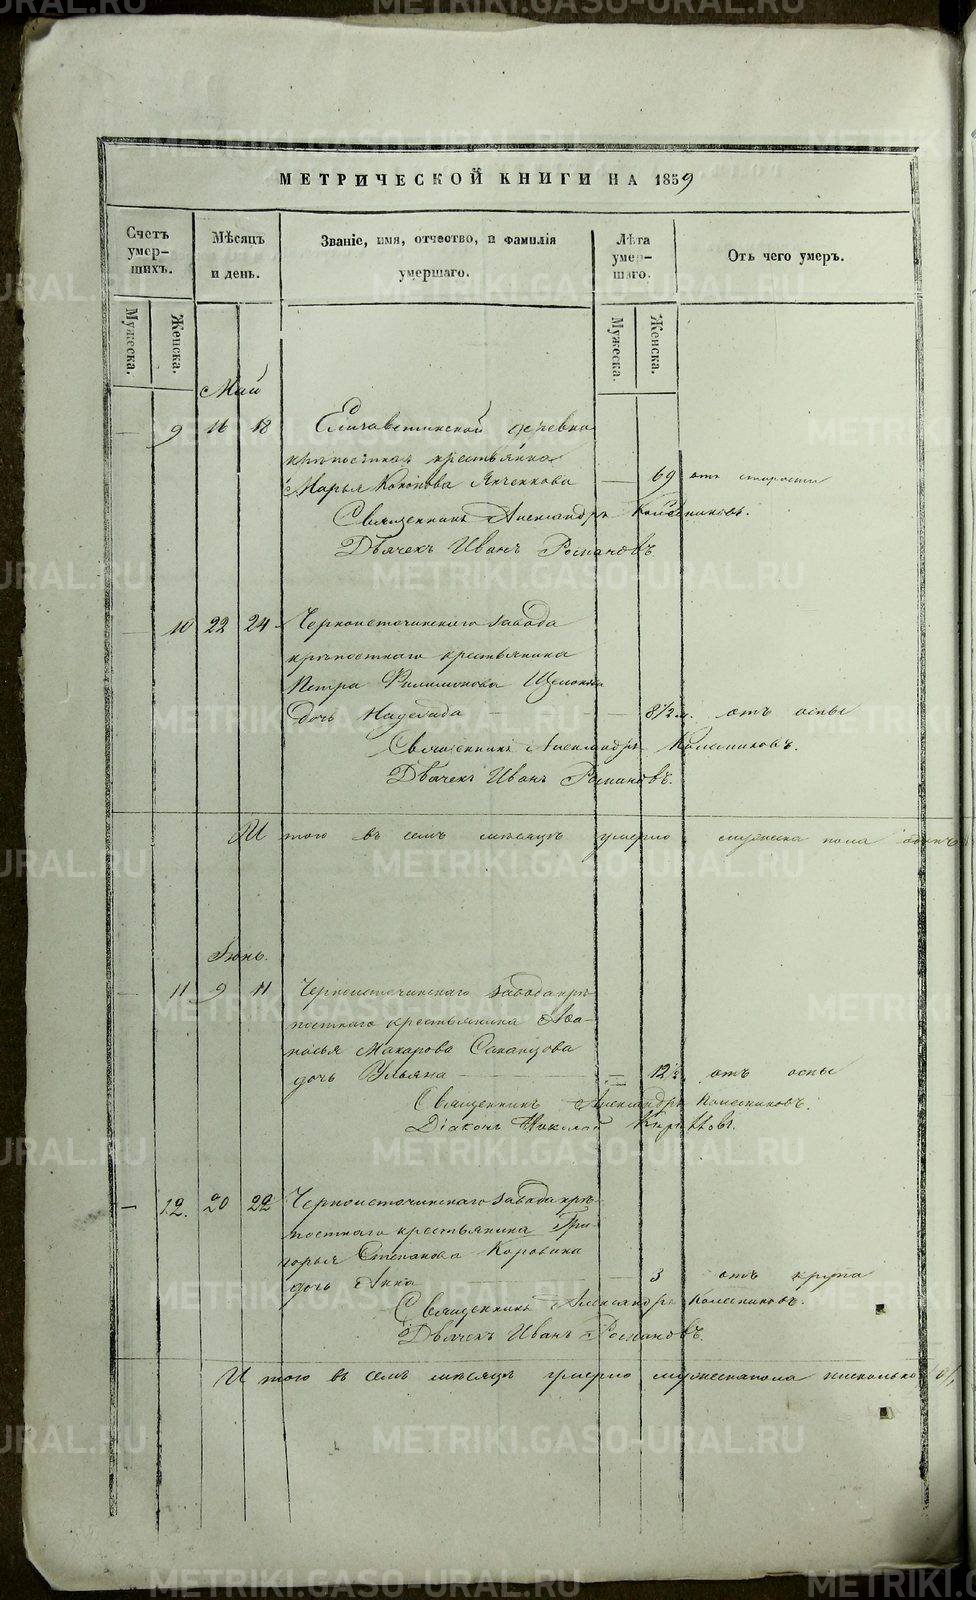 МЕТРИЧЕСКОЙ КНИГИ НА 1859
Счетъ умер-шихъ.
Мѣсяцъ и день.
Званіе, имя, отчество, и фамилія умершаго.
Лѣта умер-шаго.
Отъ чего умеръ.
Мужеска.
Женска.
Мужеска.
Женска.
Май
— 9 16 18 Елисаветинской деревни
крѣпостная крестьянка
Марья Кононова — 69 отъ старости
Священникъ Александръ Колесниковъ.
Дьячекъ Иванъ Романовъ.
— 10 22 24 Черноисточинскаго завода
крѣпостнаго крестьянина
Петра Филимонова
дочь Надежда — — 8 1/2 м. отъ оспы
Священникъ Александръ Колесниковъ.
Дьячекъ Иванъ Романовъ.
И того въ семъ мѣсяцѣ умерло мужеска пола
Іюнь.
— 11 9 11 Черноисточинскаго завода крѣ-
постнаго крестьянина Афа-
насья Макарова
дочь Ульяна — — 12 отъ оспы
Священникъ Александръ Колесниковъ.
Діаконъ Николай
— 12. 20 22 Черноисточинскаго завода крѣ-
постнаго крестьянина Гри-
горья Степанова Коровина
дочь Анна — 3 отъ крупа
Священникъ Александръ Колесниковъ.
Дьячекъ Иванъ Романовъ.
И того въ семъ мѣсяцѣ умерло мужеска пола нисколько
METRIKI.GASO-URAL.RU